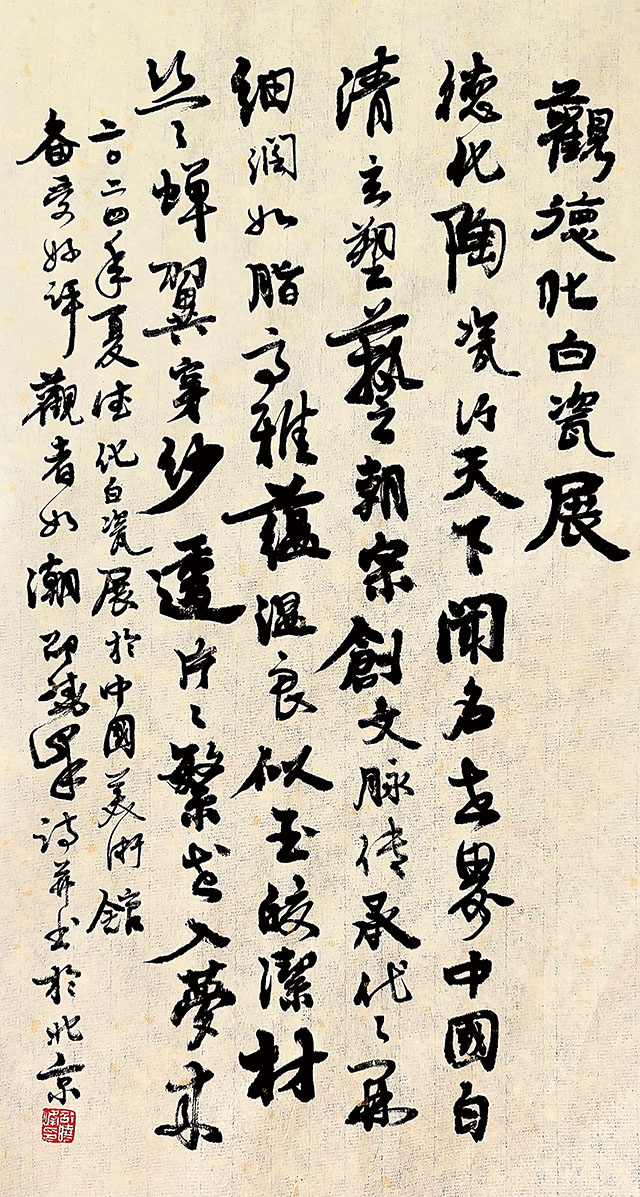 觀德化白瓷展
德化陶瓷行天下聞名世界中國白
清立塑藝朝宗創文脉传承代々開
細潤如脂高雅蘊温良似玉皎潔材
丝々蝉翼穿纱透片々繁花入夢来
二〇二四年夏德化白瓷展於中國美術館
备受好評觀者如潮邵曉峰詩并书於北京